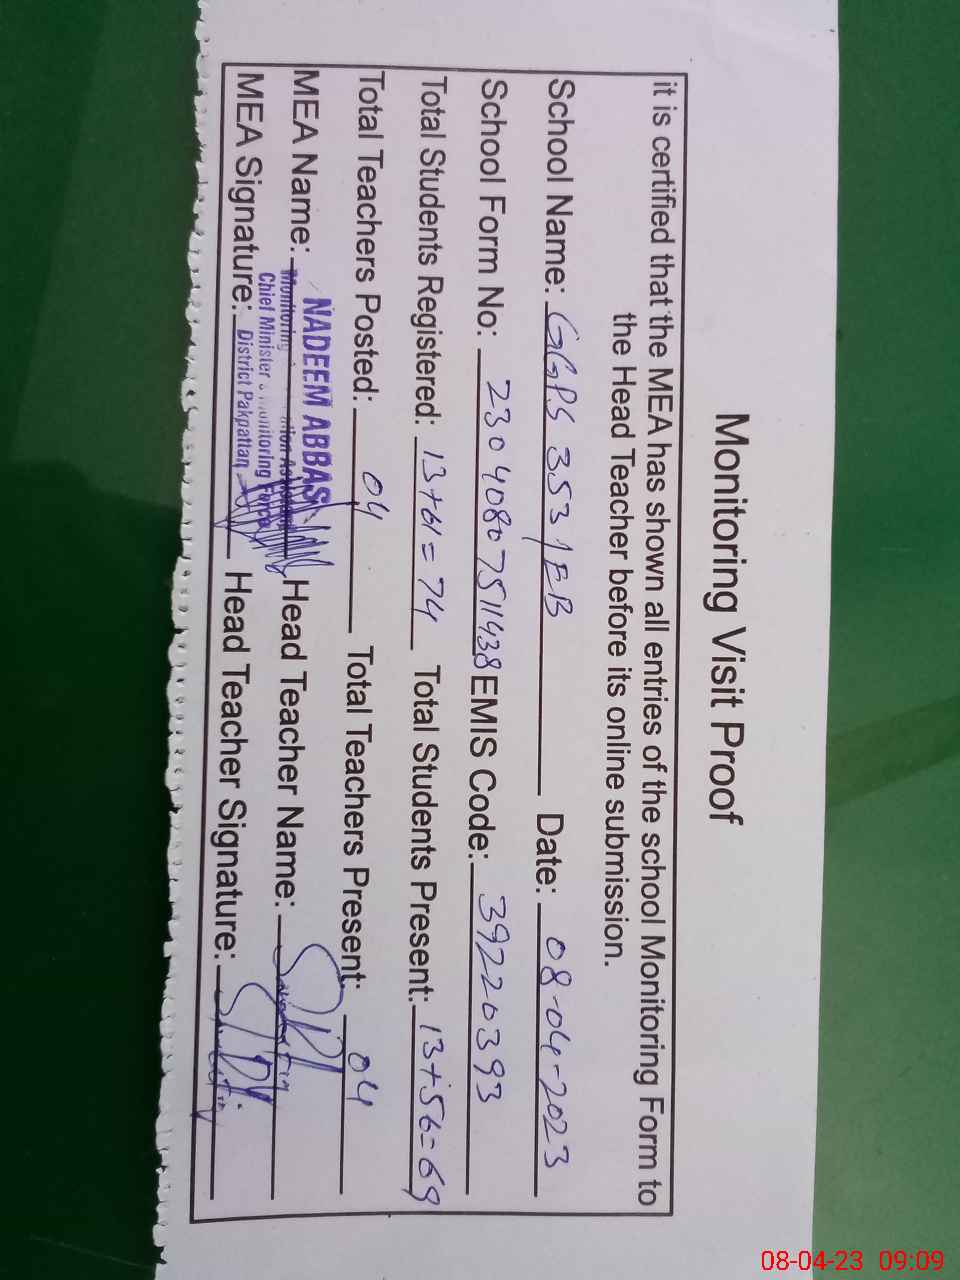 Monitoring Visit Proof
it is certified that the MEA has shown all entries of the school Monitoring Form to
the Head Teacher before its online submission.
School Name: GGPS 353/EB Date: 08-04-2023
School Form No: 2304080751 1438 EMIS Code: 39220393
Total Students Registered: 13+61=74 Total Students Present: 13+56=69
Total Teachers Posted: 04 Total Teachers Present: 04
MEA Name: NADEEM ABBAS Head Teacher Name:
Monitoring
Chief Minister's Monitoring Force
MEA Signature: District Pakpattan Head Teacher Signature:
08-04-23 09:09